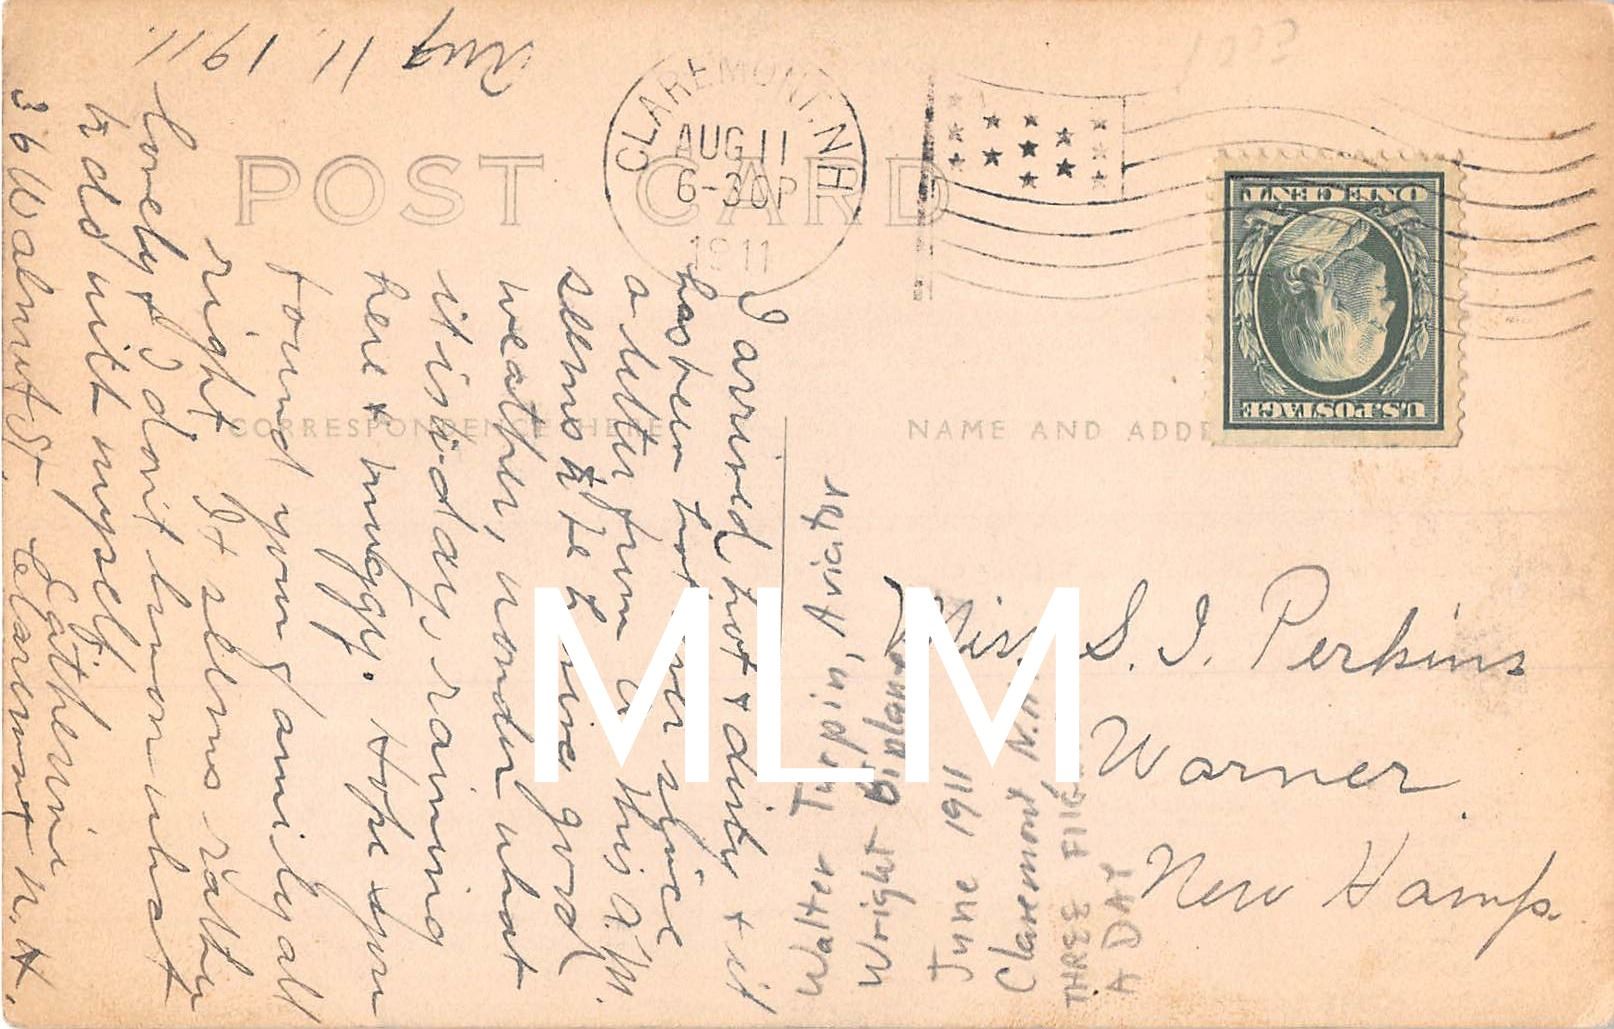 Aug 11. 1911.
CLAREMONT, N.H.
AUG 11
6-30P
1911
ONE CENT
U.S. POSTAGE
POST CARD
CORRESPONDENCE HERE
NAME AND ADDR
I arrived, hot & dirty & it
has been hot ever since
a letter from a this a.m.
seems to be having good
weather, wonder what
it is to-day, raining
here & muggy. Hope you
found your family all
right. It seems rather
lonely & I don't know what
to do with myself.
Catherine
36 Walnut St. Claremont N.H.
Miss. S. I. Perkins
Warner.
New Hamp.
Walter Turpin, Aviator
Wright Biplane
June 1911
Claremont N.H.
THREE FLIGH
A DAY
MLM